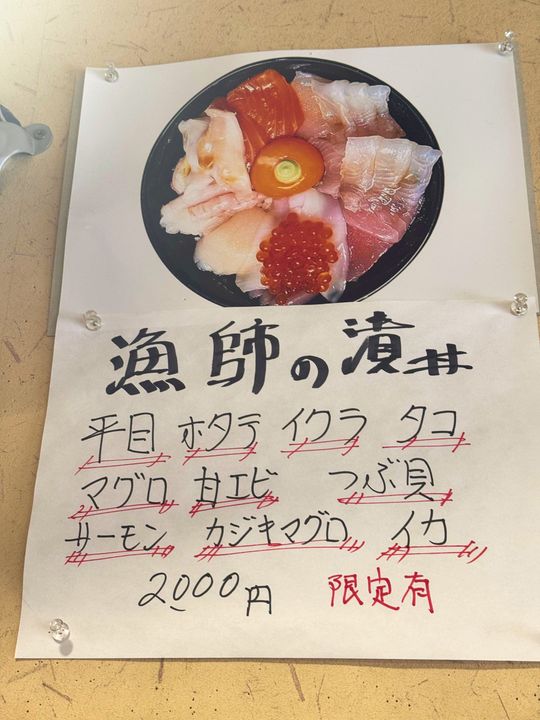 漁師の漬丼
平目 ホタテ イクラ タコ
マグロ 甘エビ つぶ貝
サーモン カジキマグロ イカ
2000円 限定有